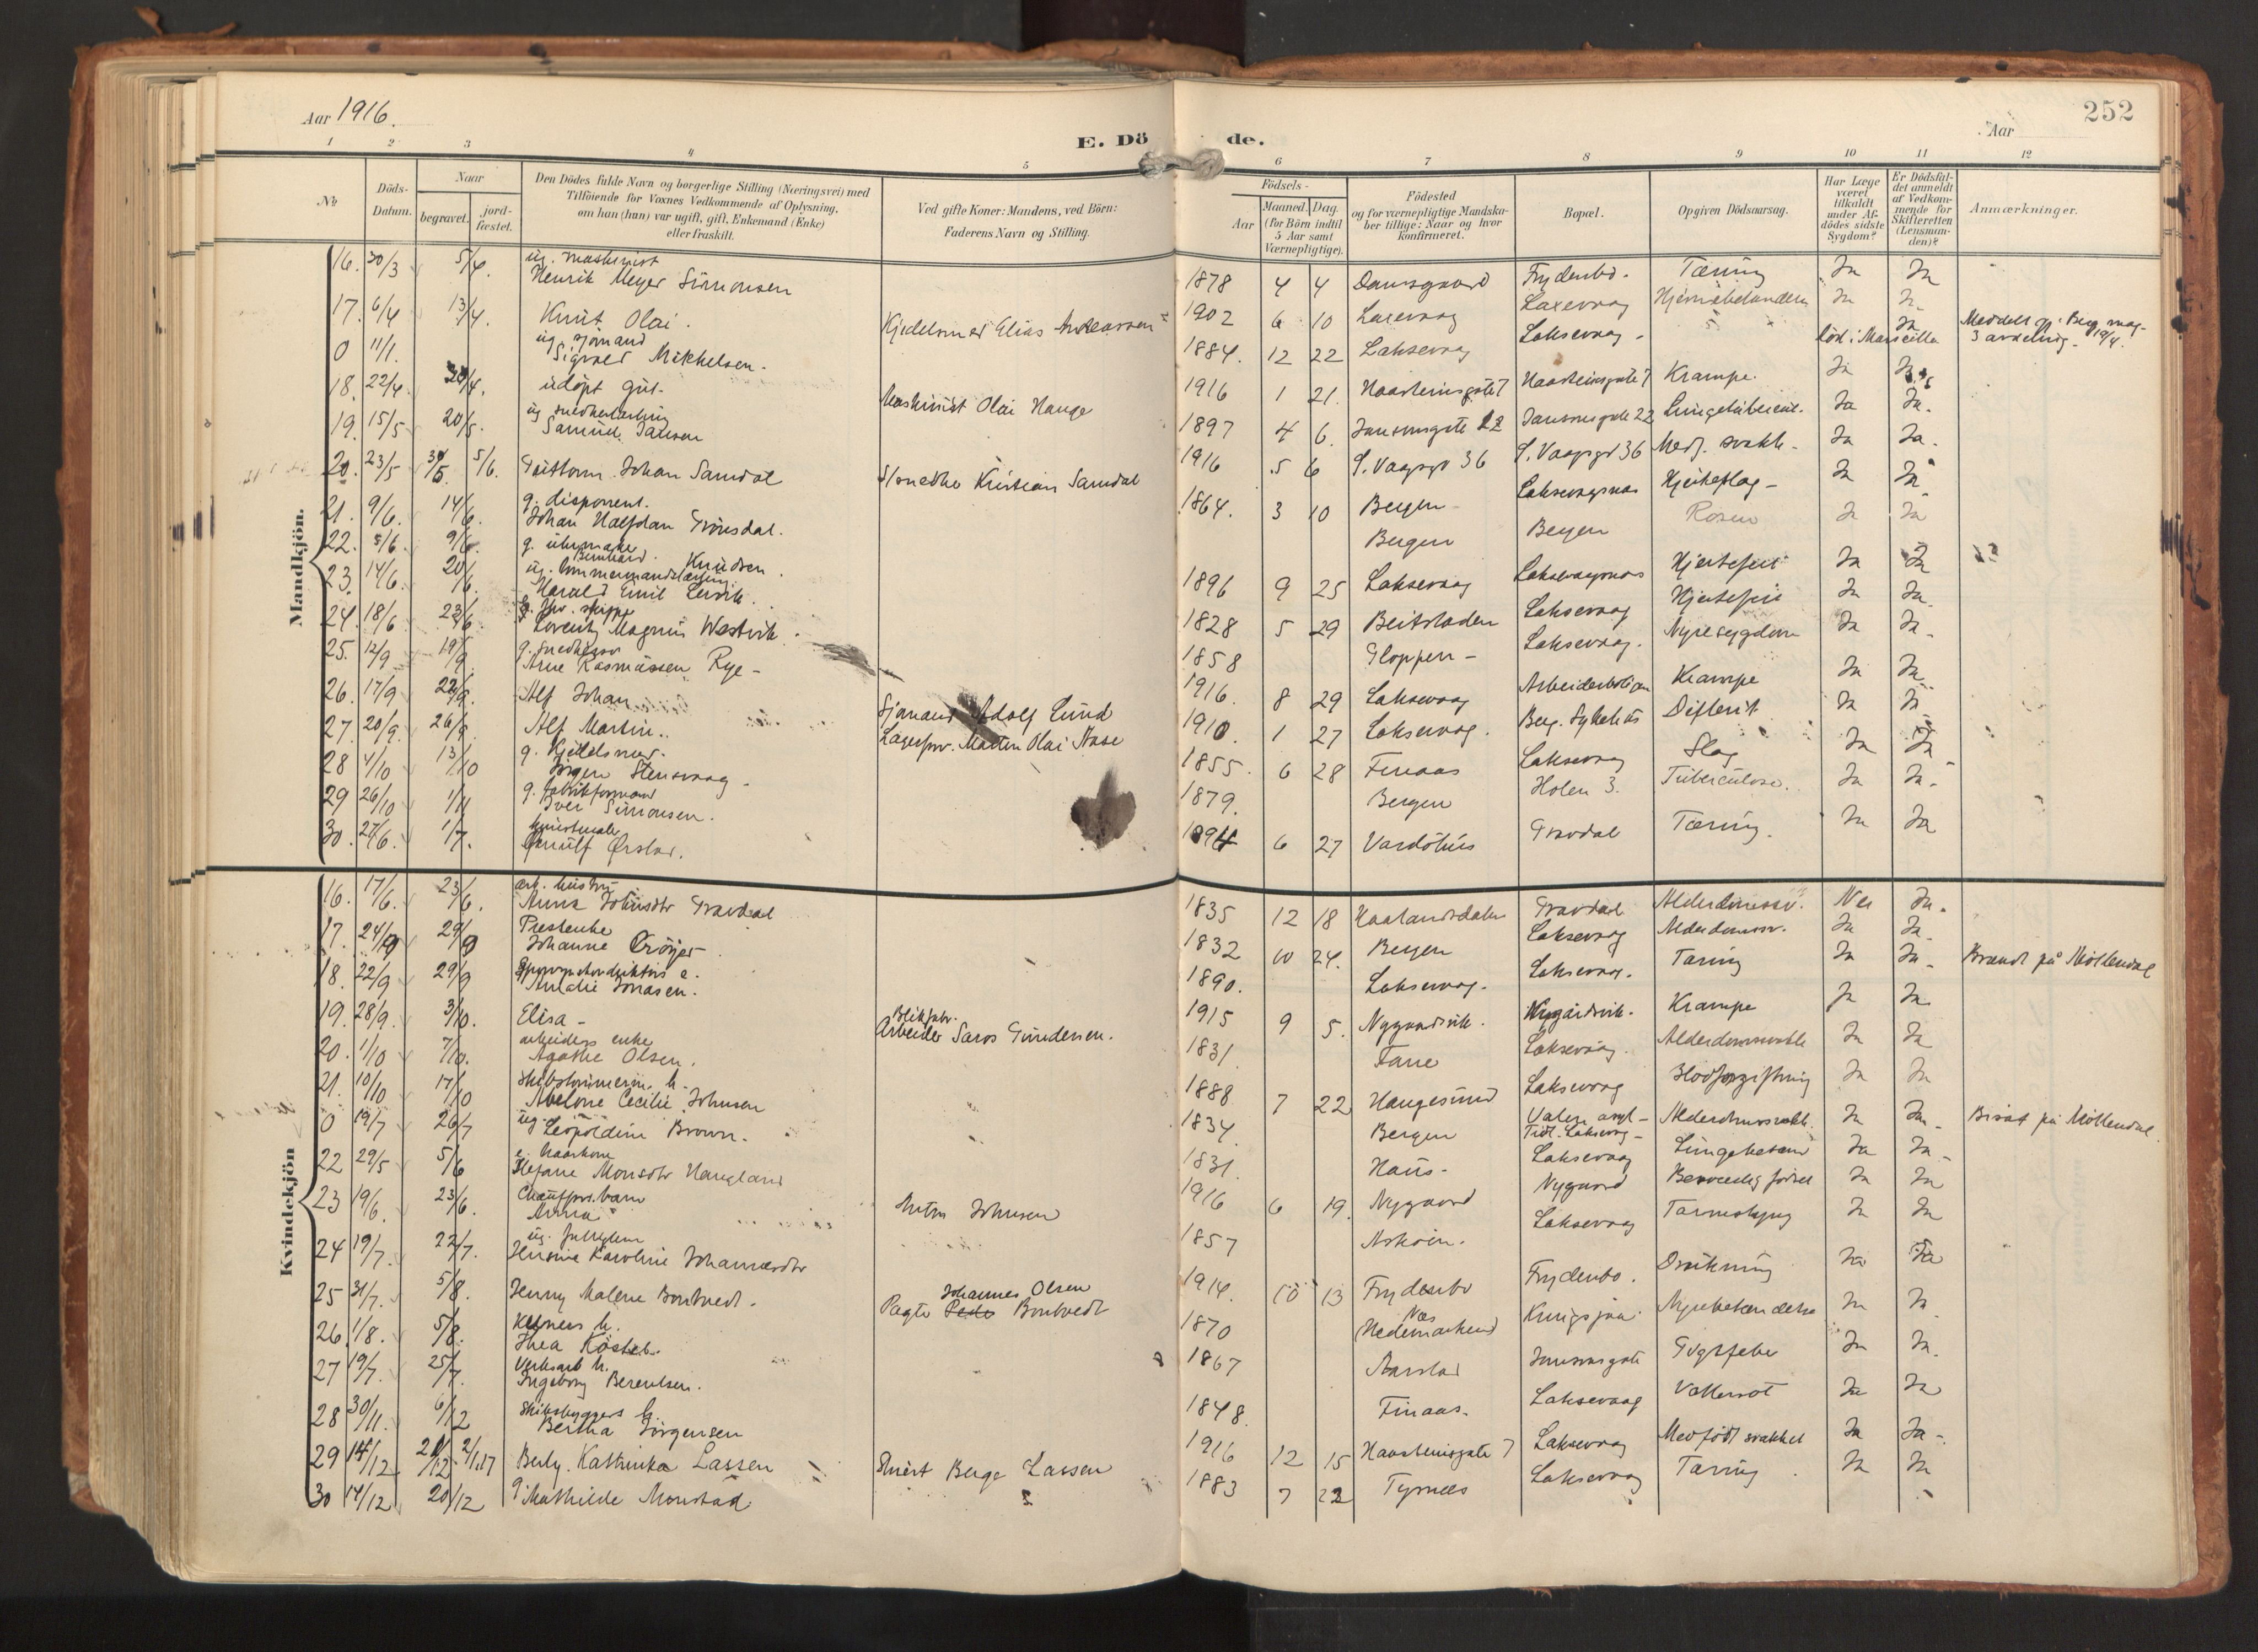 252
Aar 1916.
E. Dö de.
Aar
1 2 3 4 5 6 7 8 9 10 11 12
No
Döds-Datum.
Naar
begravet.
jord-fæstet.
Den Dödes fulde Navn og borgerlige Stilling (Næringsvei) med
Tilföiende for Voxnes Vedkommende af Oplysning,
om han (hun) var ugift, gift, Enkemand (Enke)
eller fraskilt.
Ved gifte Koner: Mandens, ved Börn:
Faderens Navn og Stilling.
Födsels-
Aar
Maaned. Dag.
(for Börn indtil
5 Aar samt
Værnepligtige).
Födested
og for værnepligtige Mandska-
ber tillige: Naar og hvor
Konfirmeret.
Bopæl.
Opgiven Dödsaarsag.
Har Læge
været
tilkaldt
under Af-
dödes sidste
Sygdom?
Er Dödsfal-
det anmeldt
af Vedkom-
mende for
Skifteretten
(Lensman-
den)?
Anmærkninger.
Mandkjön.
16. 30/3 5/4. ug. maskinist
Henrik Meyer Simonsen 1878 4 4 Damsgaard Frydenbö. Tæring Ja Ja
17. 6/4 13/4. Knut Olai. Kjedelsmed Elias Andreassen 1902 6 10 Laxevaag Laxevaag Hjernebetændelse Ja Ja
0 11/1. ug sjömand
Sigvald Mikkelsen. 1884. 12 22 Laksevaag Laksevaag. död i Marseille Ja Meddelt gj. Berg. mag. 3 avdeling. 19/4.
18. 22/4 /4. udöpt gut. Maskinist Olai Hauge 1916 1 21. Haasteinsgate 7 Haasteinsgate 7 Krampe. Ja Ja
19. 15/5 20/5. ug snedkerlærling
Samuel Jansen 1897 4 6. Jansonsgate 22 Jansonsgate 22 Lungetubercul. Ja Ja.
20. 23/5 30/5 5/6. Guttorm Johan Samdal Snedker Kristian Samdal 1916 5 6 S. Vaagsgt 36 S. Vaagsgt 36 Medf. svakh. Ja Ja.
21. 9/6. 14/6. g. disponent.
Johan Halfdan Grönsdal. 1864. 3 10 Bergen Laksevaagnæs Hjerteslag Ja Ja
22. 5/6 9/6. g. uhrmaker
Bernhard Knudsen. Bergen Bergen Rosen Ja Ja
23. 14/6. 20/6. ug. tömmermandslærling
Harald Emil Lervik. 1896 9 25 Laksevaag Laksevaagnæs Hjertefeil Ja Ja
24. 18/6 23/6 e. fhv. skipper
Lorentz Magnus Westvik. 1828 5 29 Beitstaden Laksevaag Hjertefeil Ja Ja.
25. 12/9 19/9 g. snedkersv
Arne Rasmussen Rye 1858 Gloppen Laksevaag. Nyresygdom Ja Ja.
26. 17/9 22/9. Alf Johan Sjömand Adolf Lund 1916. 8 29 Laksevaag Arbeiderboligen Krampe Ja Ja
27. 20/9. 26/9 Alf Martin. Lagerfor. Martin Olai Aase 1910. 1 27 Laksevaag. Berg. Sykehus Difterit Ja Ja
28 4/10 13/10 g. Kjedelsmed.
Jörgen Stensvaag 1855. 6 28 Finaas Laksevaag Slag Ja Ja
29 26/10 1/11 g. fabrikformand
Iver Simonsen. 1879. Bergen Holen 3. Tuberculose. Ja Ja.
30. 27/6. 1/7. kunstmaler
Ørstad. 1894 6 27 Vardöhus Gravdal Tæring. Ja Ja
Kvindekjön
16. 17/6. 23/6. arb. hustru
Anna Johnsdtr Gravdal 1835 12 18 Haalandsdalen Gravdal Alderdomssv. Nei Ja.
17. 24/9 29/9 Prestenke
Johanne Kröyer 1832 10 24. Bergen Laksevaag Alderdomssv. Ja Ja.
18. 22/9 29/9 e.
Amalie Jonasen. 1890. Laksevaag. Laksevaag. Tæring Ja Ja. Brændt på Möllendal
19. 28/9. 3/10. Elisa Blikfabr.
Arbeider Saros Gundersen. 1915 9 5. Nygaardsvik. Nygårdsvik. Krampe Ja Ja
20. 1/10 7/10. arbeiders enke
Agathe Olsen. 1831. Fane Laksevaag. Alderdomssvakh Ja Ja
21. 10/10 17/10 skibstömmerm. h.
Abelone Cecilie Johnsen 1888 7 22 Haugesund Laksevaag Blodforgiftning Ja Ja
0 19/7 26/7 ug Leopoldine Brown. 1834. Bergen Valen asyl
Tidl. Laksevag Alderdomssvakh. Ja Ja. Bisat på Möllendal.
22 29/5 5/6 e. Kaarkone
Stefane Monsdtr Haugland 1831. Haus. Laksevaag Lungebetænd Ja Ja
23 19/6. 23/6. Chauffeur. barn
Anna Anton Johnsen 1916 6 19. Nygaard Nygaard Besværlig födsel Ja Ja
24 19/7. 22/7. ug.
Karoline Johannesdtr 1857 Askøen. Laksevaag Ja Ja
25 31/7. 5/8. Jenny Malene Bontvedt. Johannes Olsen
Pagte Peder Bontvedt 1914. 10 13 Frydenbö Frydenbo. Drukning Ja Ja
26. 1/8. 5/8. Kelners h.
Thea Köster. 1870 Næs
Hedemarkend Kringsjaa. Nyrebetændelse Ja Ja
27 19/7. 25/7. Verksarb h.
Ingeborg Berentsen. 1867 Aarstad Jansonsgate Gigtfeber Ja Ja.
28 30/11. 6/12 skibsbyggers h.
Bertha Jörgensen 1848. Finaas. Laksevaag Vattersot Ja Ja
29 15/12 21/12. 2/1.17 Berly. Kathinka Lassen Smed Berge Lassen 1916 12 15 Haasteinsgate 7 Laksevaag Medfödt svakhet Ja Ja
30 14/12 20/12 g. Mathilde Monstad 1883 7 22 Tysnes Laksevaag Tæring. Ja Ja